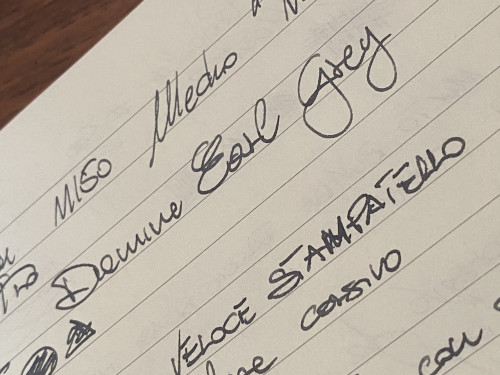 M150 Medio
Diamine Earl Grey
VELOCE STAMPATELLO
corsivo
con